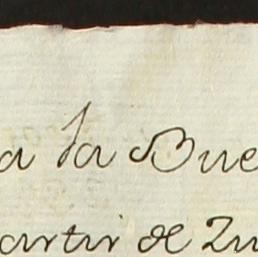 a la Bue
artir de Zu